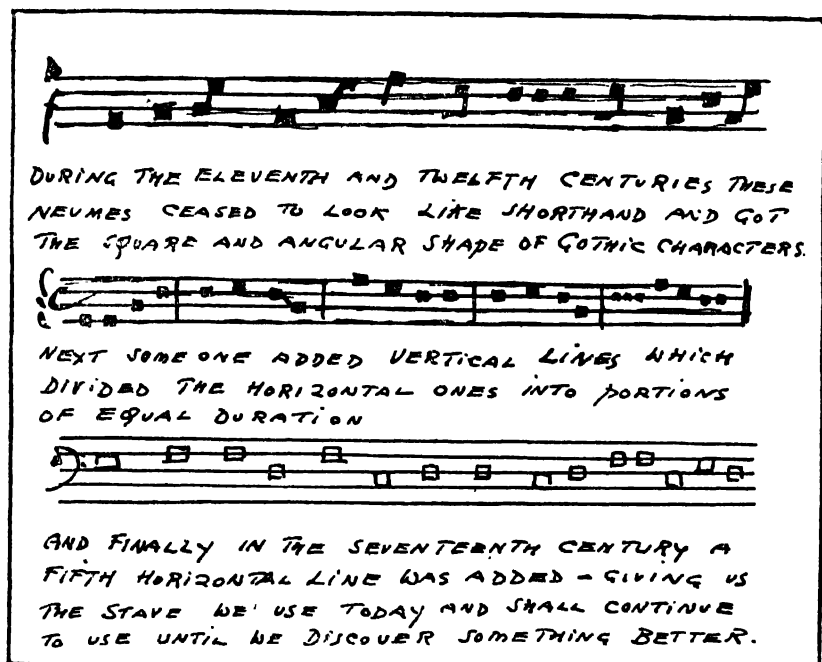 DURING THE ELEVENTH AND TWELFTH CENTURIES THESE
NEUMES CEASED TO LOOK LIKE SHORTHAND AND GOT
THE SQUARE AND ANGULAR SHAPE OF GOTHIC CHARACTERS.
NEXT SOME ONE ADDED VERTICAL LINES WHICH
DIVIDED THE HORIZONTAL ONES INTO PORTIONS
OF EQUAL DURATION
AND FINALLY IN THE SEVENTEENTH CENTURY A
FIFTH HORIZONTAL LINE WAS ADDED - GIVING US
THE STAVE WE USE TODAY AND SHALL CONTINUE
TO USE UNTIL WE DISCOVER SOMETHING BETTER.